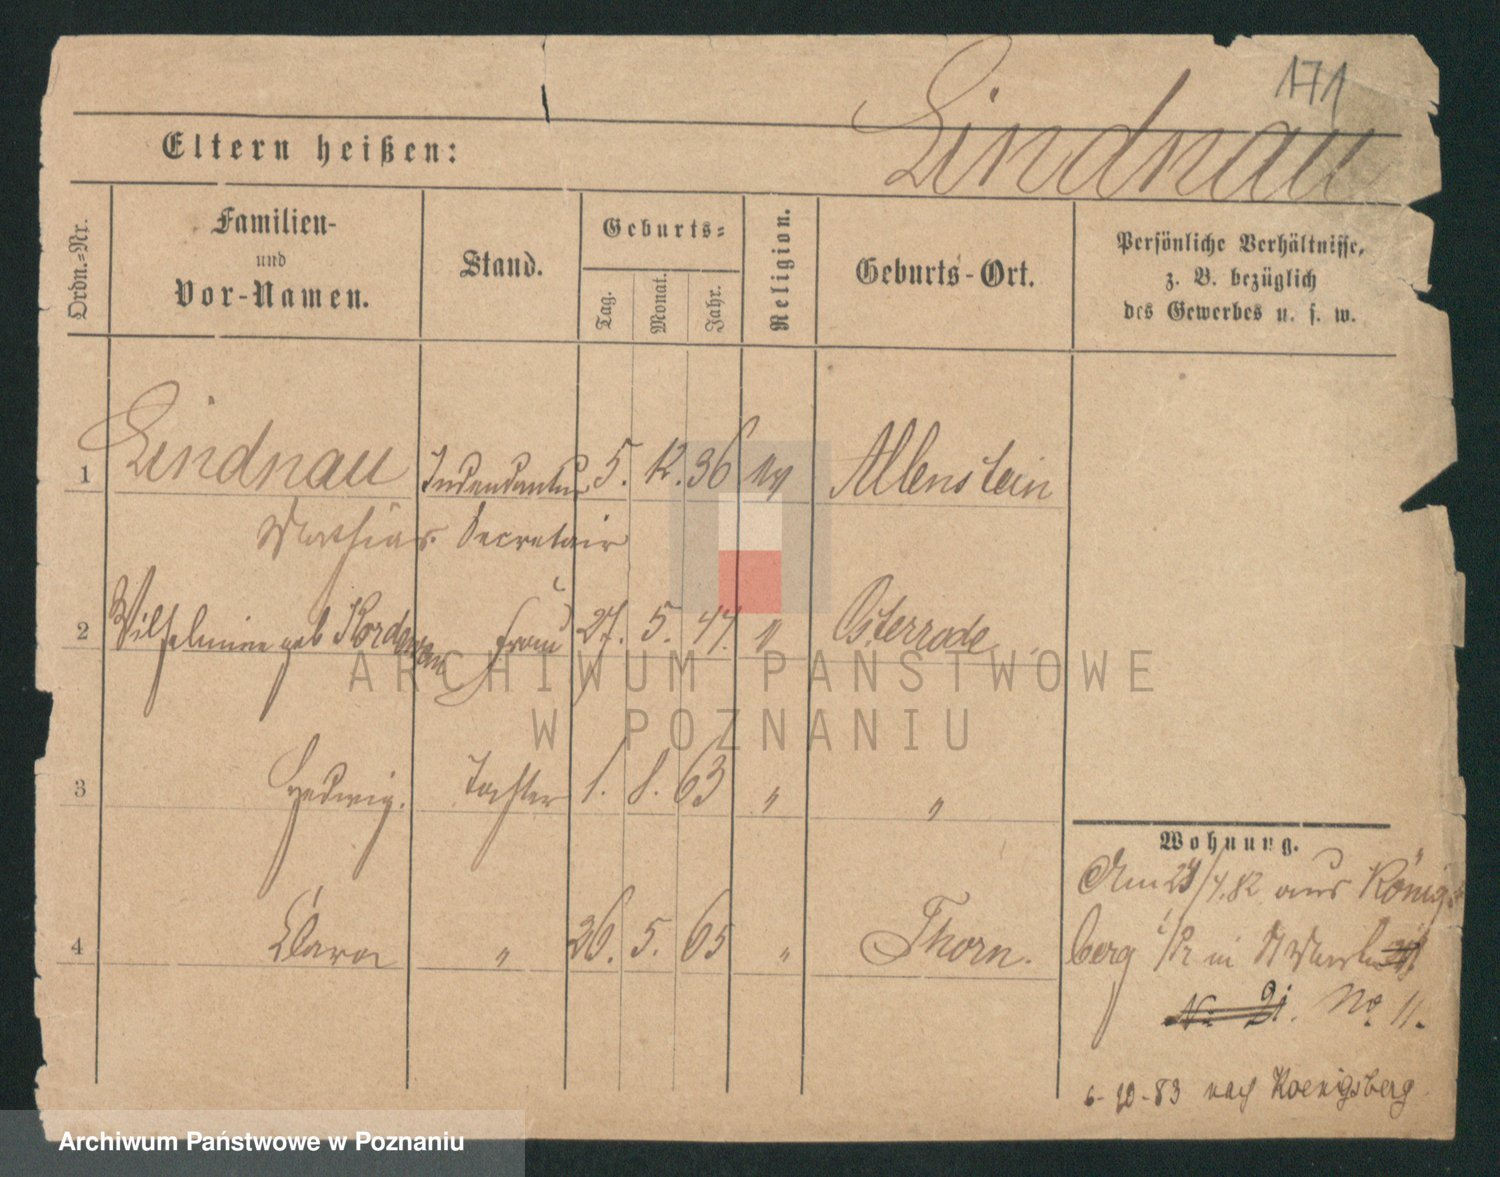 171
Lindnau
Eltern heißen:
Ordn.-Nr.
Familien-
und
Vor-Namen.
Stand.
Geburts-
Tag.
Monat.
Jahr.
Religion.
Geburts-Ort.
Persönliche Verhältnisse,
z. B. bezüglich
des Gewerbes u. s. w.
1 Lindnau Intendantur 5. 12. 36 ev Allenstein
Mathias. Secretair
2 Wilhelmine geb Frau 27. 5. 47. " Osterrode
3 Hedwig. Tochter 1. 8. 63 " "
4 Clara " 26. 5. 65 " Thorn.
Wohnung.
Am 27/4.82 aus Königs
berg i/Pr in
No 11.
6-10-83 nach Koenigsberg
ARCHIWUM PAŃSTWOWE
W POZNANIU
Archiwum Państwowe w Poznaniu